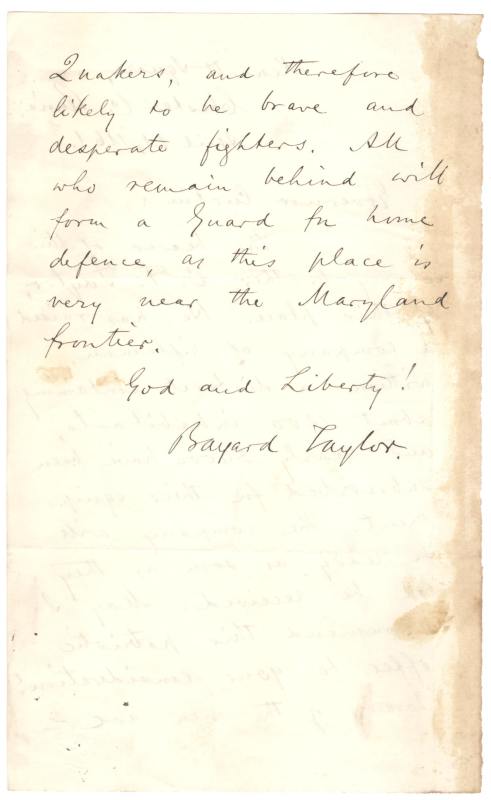 Quakers, and therefore
likely to be brave and
desperate fighters. All
who remain behind will
form a Guard for home
defence, as this place is
very near the Maryland
frontier.
God and Liberty!
Bayard Taylor.